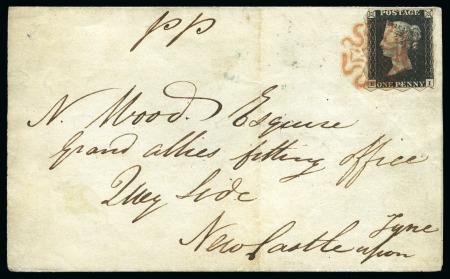 pp
POSTAGE
ONE PENNY I
N. Wood. Esquire
Grand allies fitting office
Quey Side
New Castle upon
Tyne